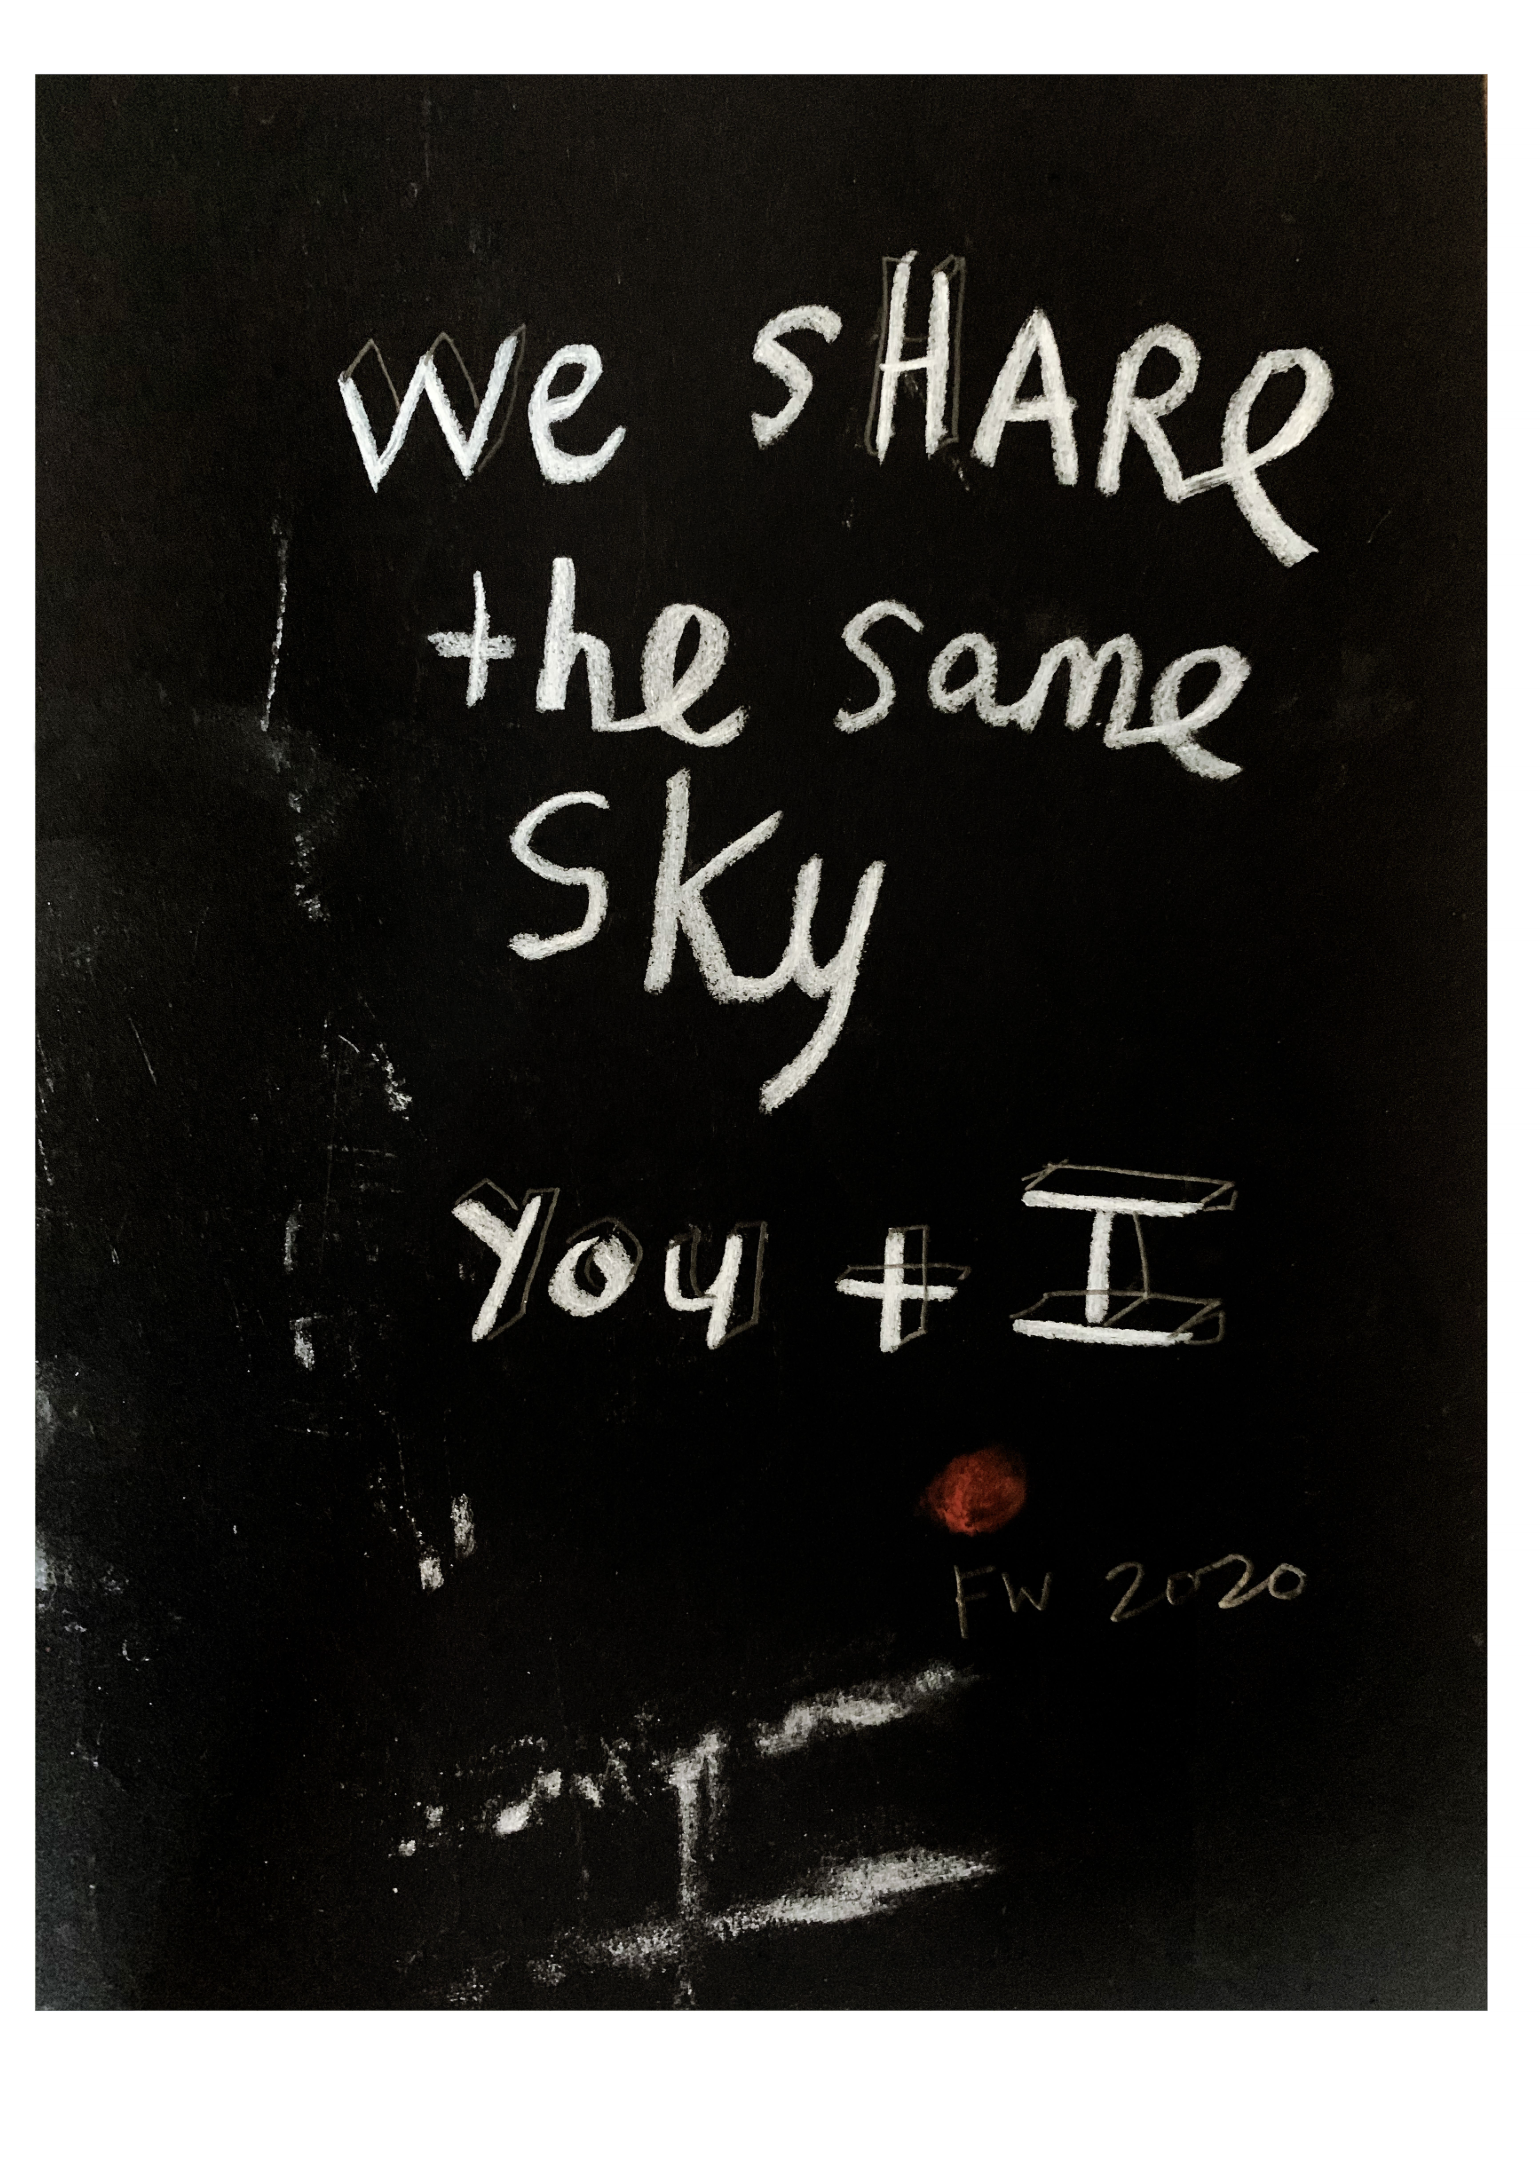 we sHARe
the same
Sky
You + I
FW 2020